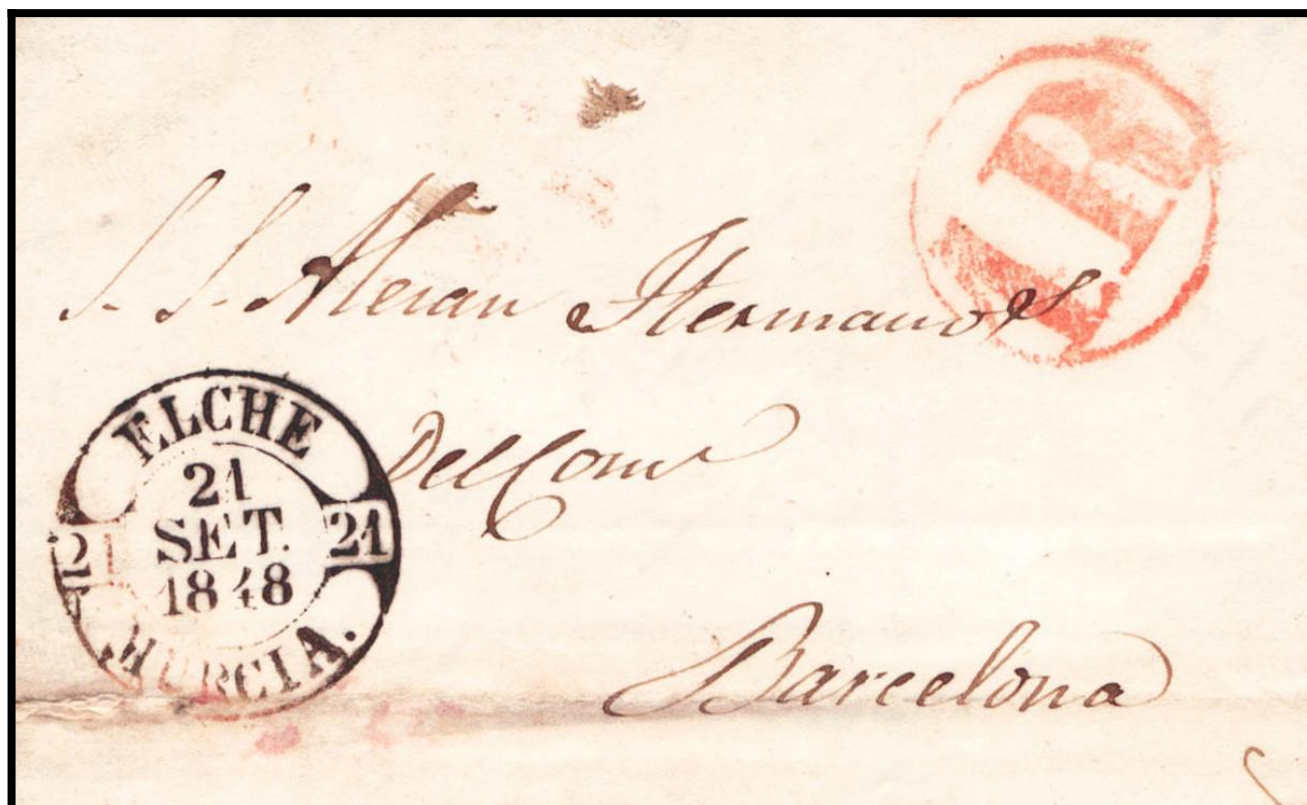 S. S. Hermanos
Del Com
Barcelona
ELCHE
21
SET.
1848
21 21
MURCIA.